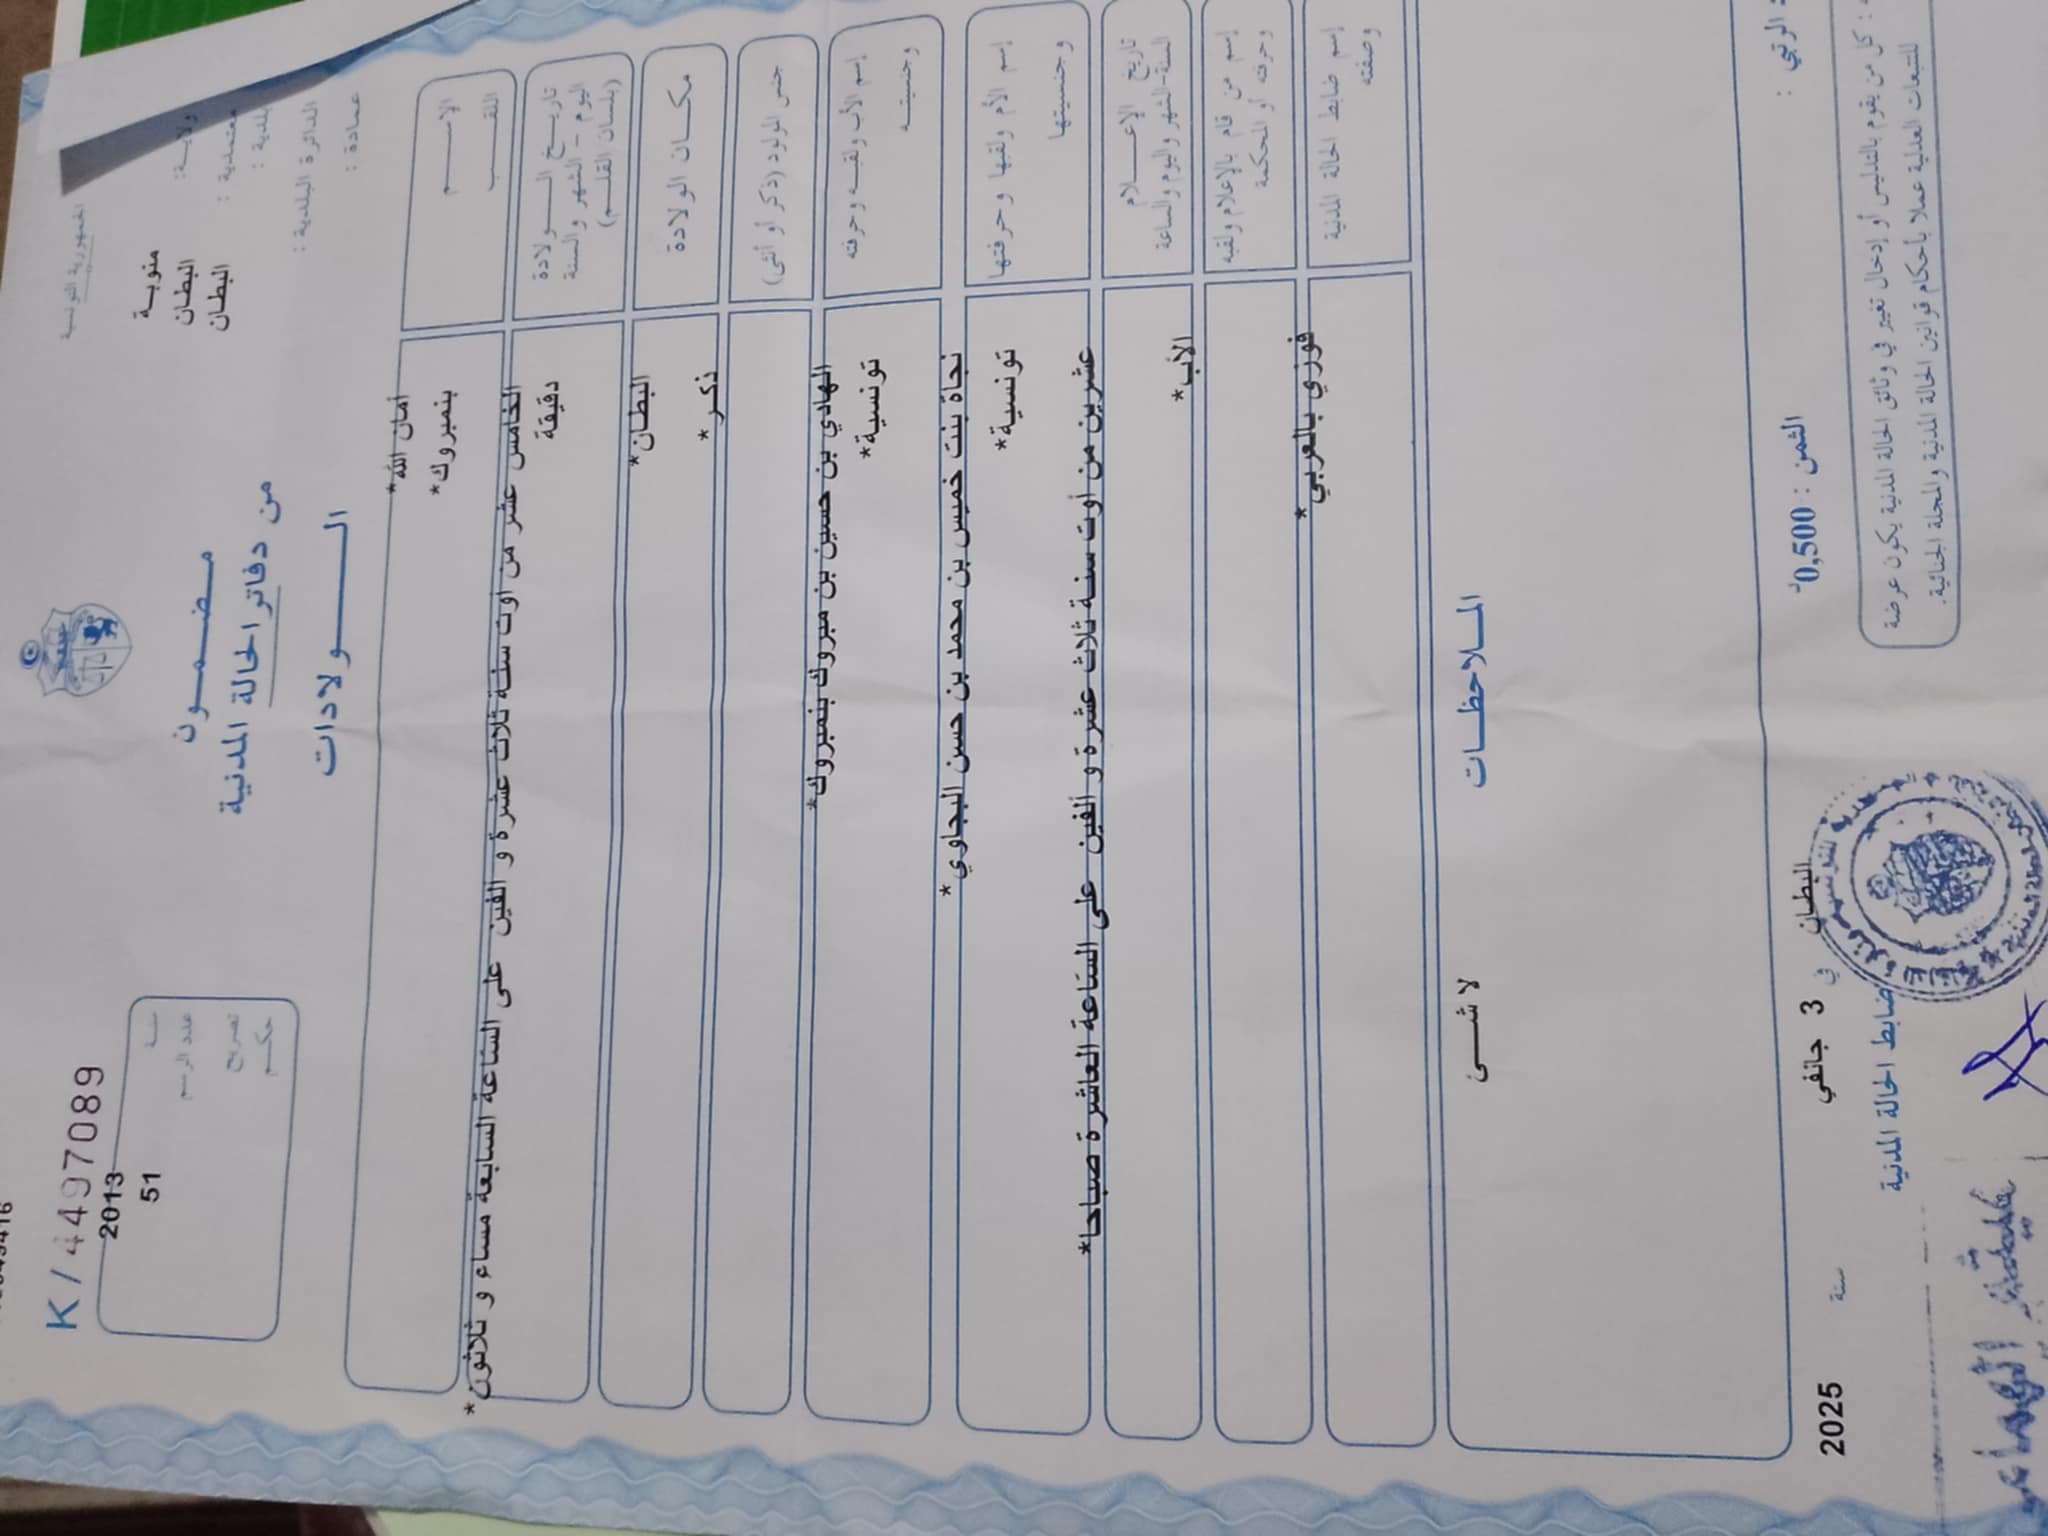 الجمهورية التونسية
K/4497089
ولاية: منوبة
معتمدية : البطان
بلدية : البطان
الدائرة البلدية :
عمادة :
مضمون
من دفاتر الحالة المدنية
الولادات
سنة 2013
عدد الرسم 51
تصريح
حكم
الإسم أمان الله*
اللقب بنمبروك*
تاريخ الولادة
اليوم – الشهر والسنة
(بلسان القلم)
الخامس عشر من أوت سنة ثلاث عشرة و ألفين على الساعة السابعة مساء و ثلاثون*
دقيقة
مكان الولادة البطان*
جنس المولود (ذكر أو أنثى) ذكر*
إسم الأب ولقبه وحرفته الهادي بن حسين بن مبروك بنمبروك*
وجنسيته تونسية*
إسم الأم ولقبها وحرفتها نجاة بنت خميس بن محمد بن حسن البجاوي*
وجنسيتها تونسية*
تاريخ الإعلام
السنة-الشهر واليوم والساعة
عشرين من أوت سنة ثلاث عشرة و ألفين على الساعة العاشرة صباحا*
إسم من قام بالإعلام ولقبه
وحرفته أو المحكمة
الأب*
إسم ضابط الحالة المدنية
وصفته
فوزي بالعربي*
الملاحظات
لا شئ
الثمن : 0,500د
البطان في 3 جانفي سنة 2025
ضابط الحالة المدنية
: كل من يقوم بالتدليس أو إدخال تغيير في وثائق الحالة المدنية يكون عرضة
للتتبعات العدلية عملا بأحكام قوانين الحالة المدنية والمجلة الجنائية.